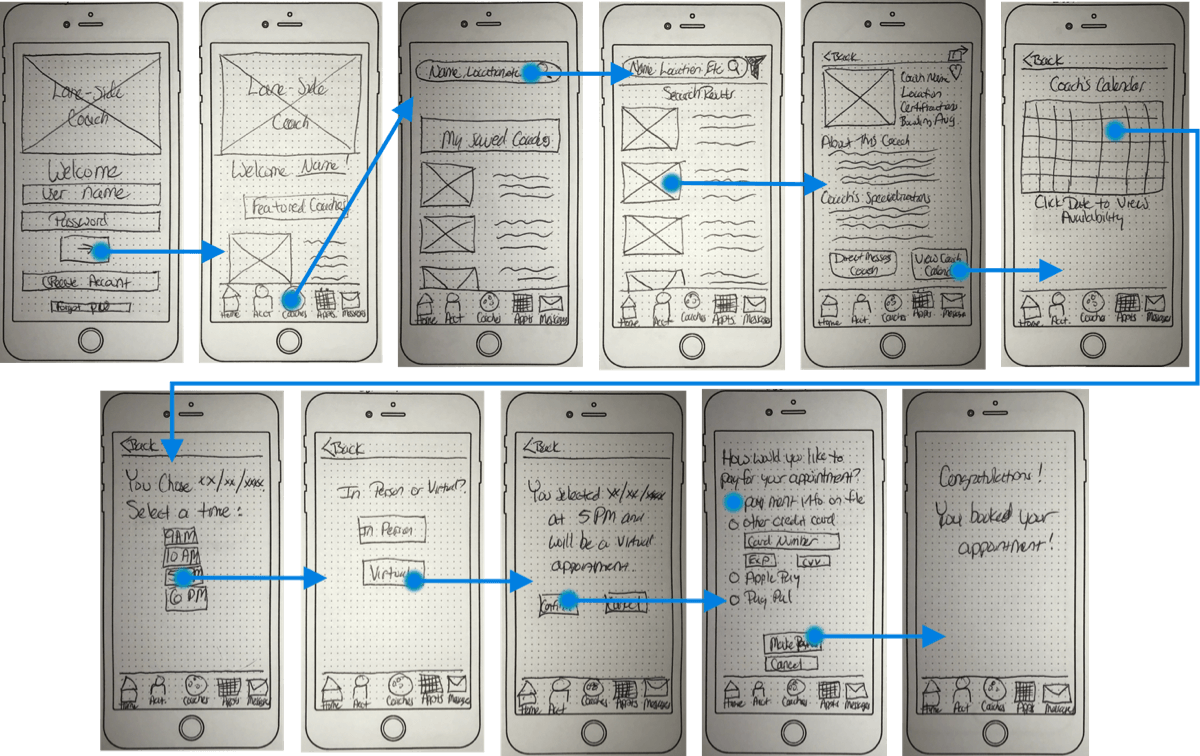 Lane-Side
Coach
Welcome
User Name
Password
Create Account
Forgot
Lane-Side
Coach
Welcome Name!
Featured Coaches
Home Acct Coaches Appts Messages
Name, Location etc
My Saved Coaches
Home Acct Coaches Appts Messages
Name, Location, Etc
Search Results
Home Acct Coaches Appts Messages
<Back
Coach Name
Location
Certifications
Bowling Avg.
About This Coach
Coach's Specializations
Direct Message
Coach
View Coach
Calendar
Home Acct. Coaches Appts Messages
<Back
Coach's Calendar
Click Date to View
Availability
Home Acct. Coaches Appts Messages
<Back
You Chose xx/xx/xxxx.
Select a time:
9AM
10 AM
6 PM
Home Acct. Coaches Appts Messages
<Back
In Person or Virtual?
In Person
Virtual
Home Acct. Coaches Appts Messages
<Back
You selected xx/xx/xxxx
at 5 PM and
will be a virtual
appointment.
Cancel
Home Acct Coaches Appts Messages
How would you like to
pay for your appointment?
payment info on file
other credit card
Card Number
Exp CVV
Apple Pay
Pay Pal
Make
Cancel
Home Acct. Coaches Appts Messages
Congratulations!
You booked your
appointment!
Home Acct. Coaches Appts Messages